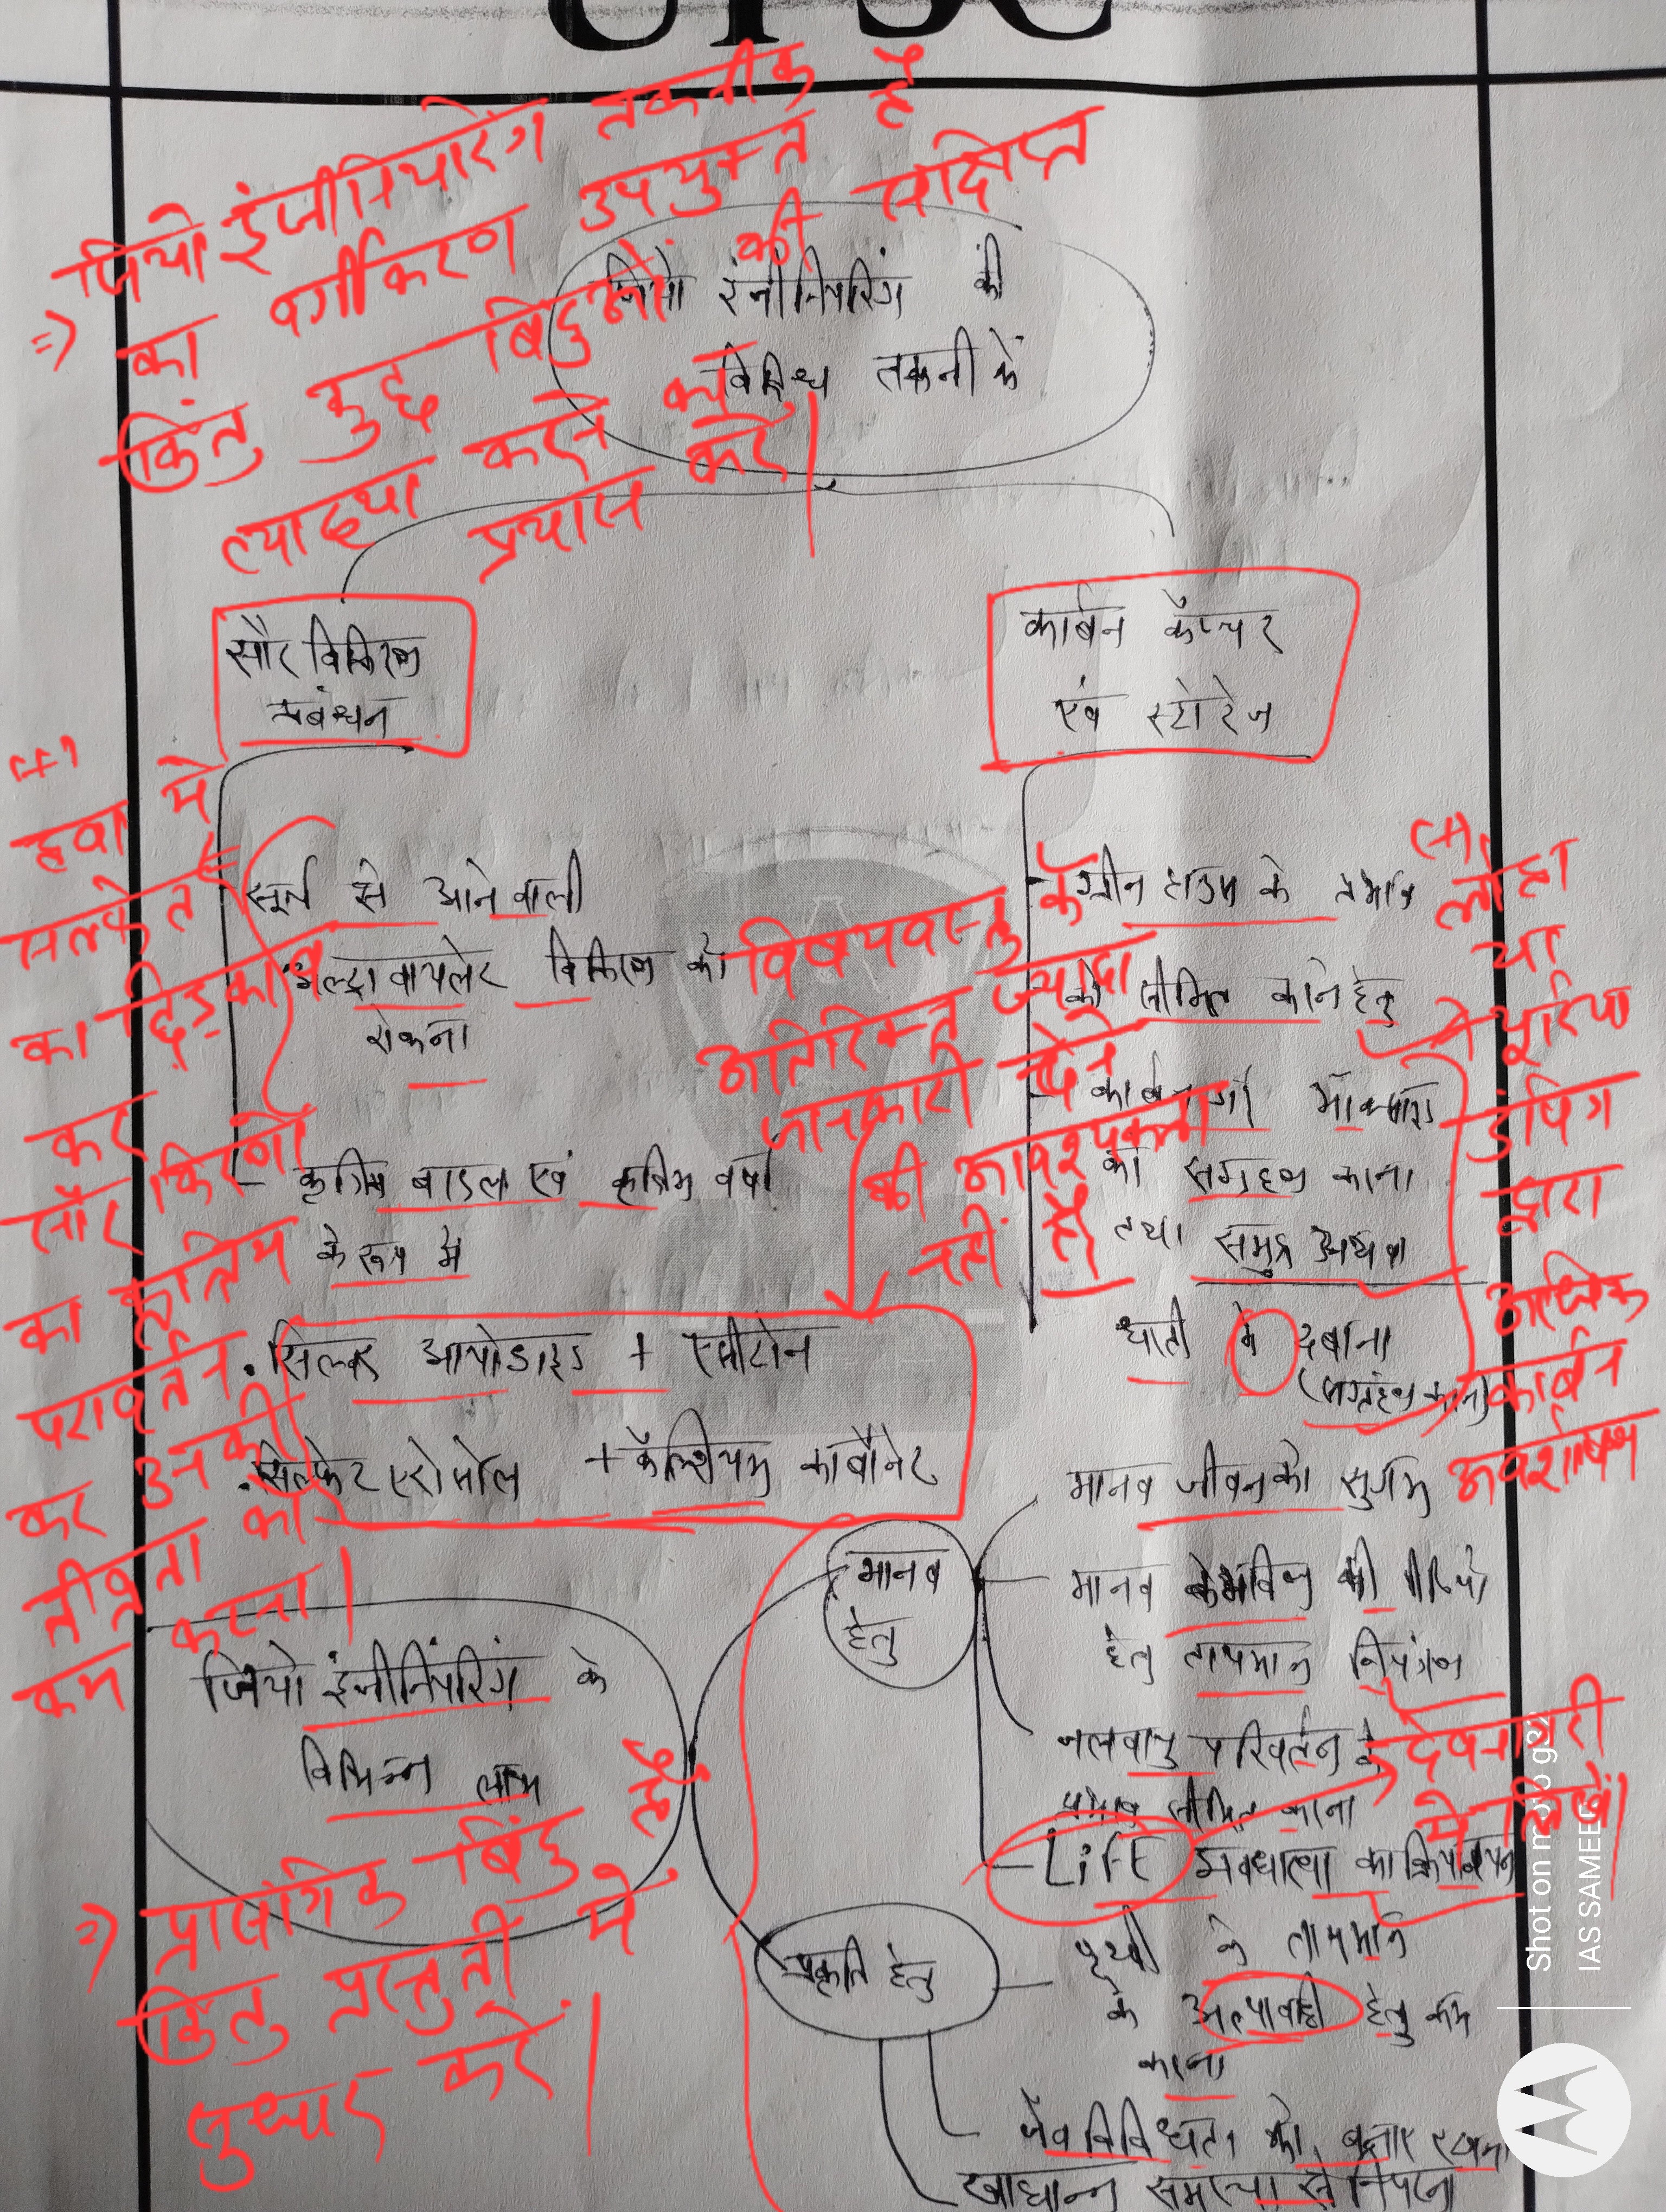 UPSC
=> जियो इंजीनियरिंग तकनीक
का वर्गीकरण उपयुक्त है
किंतु कुछ बिंदुओं की संक्षिप्त
व्याख्या करने का
प्रयास करें।
जियो इंजीनियरिंग की
विविध तकनीकें
सौर विकिरण
प्रबंधन
कार्बन कैप्चर
एवं स्टोरेज
हवा में
सल्फेट
का छिड़काव
कर
सौर किरणों
का कृत्रिम
परावर्तन
कर उनकी
तीव्रता को
कम करना।
सूर्य से आने वाली
अल्ट्रावायलेट विकिरण को
रोकना
- कृत्रिम बादल एवं कृत्रिम वर्षा
के रूप में
. सिल्वर आयोडाइड + एसीटोन
. सल्फेट एरोसोल + कैल्शियम कार्बोनेट
विषयवस्तु के
अतिरिक्त ज्यादा
जानकारी देने
की आवश्यकता
नहीं है।
ग्रीन हाउस के प्रभाव
को सीमित करने हेतु
का संग्रहण करना
तथा समुद्र अथवा
धरती में दबाना
(संग्रहण करना)
(+)
लोहा
या
यूरिया
डंपिंग
द्वारा
अत्यधिक
कार्बन
अवशोषण
मानव
हेतु
मानव जीवन को सुगम
मानव के भविष्य की पीढ़ियों
हेतु तापमान नियंत्रण
जलवायु परिवर्तन के
प्रभाव सीमित करना
- LiFE अवधारणा का क्रियान्वयन
देवनागरी
में लिखें।
जियो इंजीनियरिंग के
विभिन्न लाभ
=> प्रासंगिक बिंदु हैं
किंतु प्रस्तुती में
सुधार करें।
प्रकृति हेतु
पृथ्वी के तापमान
के अल्पावधि हेतु कम
करना
जैव विविधता को बनाए रखना
खाद्यान्न समस्या से निपटना
Shot on moto g32
IAS SAMEER